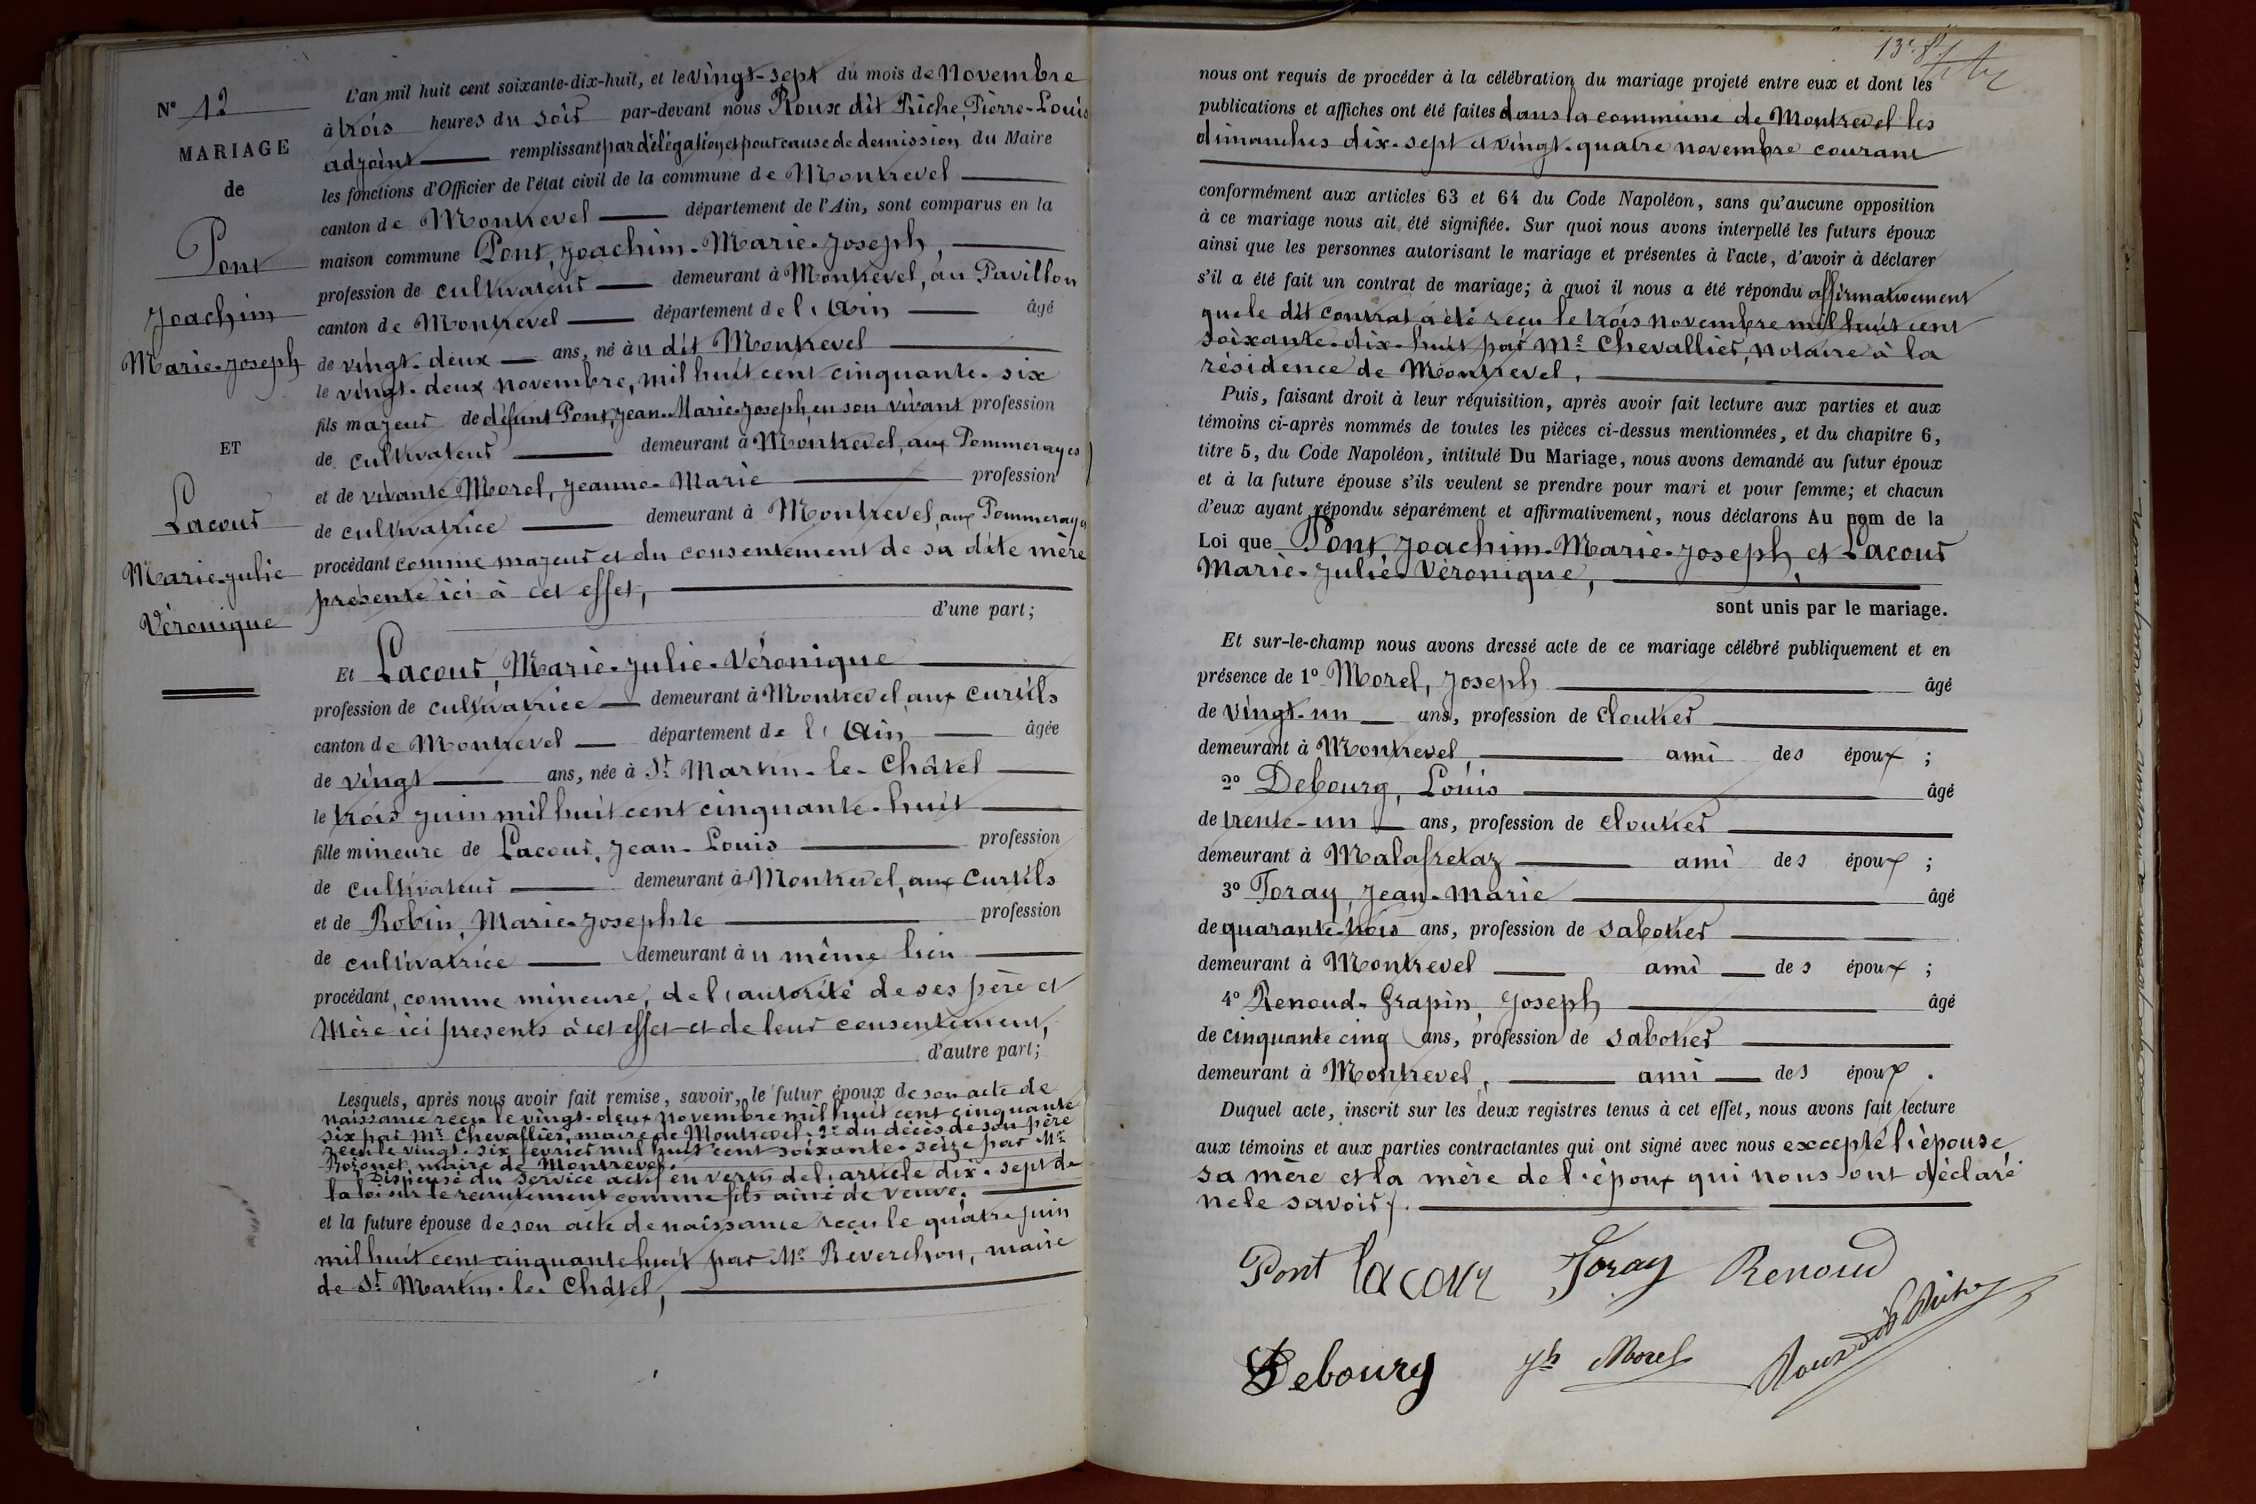 N° 12
MARIAGE
de
Pont
Joachim
Marie-Joseph
ET
Lacour
Marie-Julie
Véronique
L'an mil huit cent soixante-dix-huit, et le vingt-sept du mois de Novembre
à trois heures du soir par-devant nous Roux dit Riche, Pierre-Louis
adjoint remplissant par délégation et pour cause de demission du Maire
les fonctions d'Officier de l'état civil de la commune de Montrevel
canton de Montrevel département de l'Ain, sont comparus en la
maison commune Pont, Joachim-Marie-Joseph,
profession de cultivateur demeurant à Montrevel, au Pavillon
canton de Montrevel département de l'Ain âgé
de vingt-deux ans, né à u dit Montrevel
le vingt-deux novembre, mil huit cent cinquante-six
fils majeur de défunt Pont, Jean-Marie-Joseph, en son vivant profession
de cultivateur demeurant à Montrevel, aux Pommerayes
et de vivante Morel, Jeanne-Marie profession
de cultivatrice demeurant à Montrevel, aux Pommerayes
procédant comme majeur et du consentement de sa dite mère
présente ici à cet effet,
d'une part;
Et Lacour, Marie-Julie-Véronique
profession de cultivatrice demeurant à Montrevel, aux Curtils
canton de Montrevel département de l'Ain âgée
de vingt ans, née à St Martin-le-Châtel
le trois juin mil huit cent cinquante-huit
fille mineure de Lacour, Jean-Louis profession
de cultivateur demeurant à Montrevel, aux Curtils
et de Robin, Marie-Josephte profession
de cultivatrice demeurant à u même lieu
procédant, comme mineure, de l'autorité de ses père et
Mère ici presents à cet effet et de leur consentement,
d'autre part;
Lesquels, après nous avoir fait remise, savoir, le futur époux de son acte de
naissance reçu le vingt-deux novembre mil huit cent cinquante
six par Mr Chevallier, maire de Montrevel; 2° du décès de son père
reçu le vingt-six fevrier mil huit cent soixante-seize par Mr
maire de Montrevel.
Dispensé du service actif en vertu de l'article dix-sept de
la loi sur le recrutement comme fils ainé de veuve.
et la future épouse de son acte de naissance reçu le quatre juin
mil huit cent cinquante huit par Mr Reverchon, maire
de St Martin-le-Châtel,
nous ont requis de procéder à la célébration du mariage projeté entre eux et dont les
publications et affiches ont été faites dans la commune de Montrevel les
dimanches dix-sept et vingt-quatre novembre courant
conformément aux articles 63 et 64 du Code Napoléon, sans qu'aucune opposition
à ce mariage nous ait été signifiée. Sur quoi nous avons interpellé les futurs époux
ainsi que les personnes autorisant le mariage et présentes à l'acte, d'avoir à déclarer
s'il a été fait un contrat de mariage; à quoi il nous a été répondu affirmativement
que le dit contrat a été reçu le trois novembre mil huit cent
soixante-dix-huit par Me Chevallier, notaire à la
résidence de Montrevel.
Puis, faisant droit à leur réquisition, après avoir fait lecture aux parties et aux
témoins ci-après nommés de toutes les pièces ci-dessus mentionnées, et du chapitre 6,
titre 5, du Code Napoléon, intitulé Du Mariage, nous avons demandé au futur époux
et à la future épouse s'ils veulent se prendre pour mari et pour femme; et chacun
d'eux ayant répondu séparément et affirmativement, nous déclarons Au nom de la
Loi que Pont, Joachim-Marie-Joseph et Lacour
Marie-Julie-Véronique,
sont unis par le mariage.
Et sur-le-champ nous avons dressé acte de ce mariage célébré publiquement et en
présence de 1° Morel, Joseph âgé
de vingt-un ans, profession de cloutier
demeurant à Montrevel, ami des époux ;
2° Debourg, Louis âgé
de trente-un ans, profession de cloutier
demeurant à Malafretaz ami des époux ;
3° Foray, Jean-Marie âgé
de quarante-trois ans, profession de sabotier
demeurant à Montrevel ami des époux ;
4° Renoud-Grapin, Joseph âgé
de cinquante cinq ans, profession de sabotier
demeurant à Montrevel, ami des époux.
Duquel acte, inscrit sur les deux registres tenus à cet effet, nous avons fait lecture
aux témoins et aux parties contractantes qui ont signé avec nous excepté l'épouse
sa mère et la mère de l'époux qui nous ont déclaré
ne le savoir.
Pont lacour Foray Renoud
Debourg Jh Morel Roux dit Riche